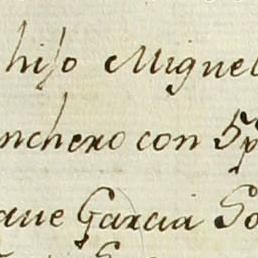 hijo Miguel
nchero con 5p
aque Garcia So